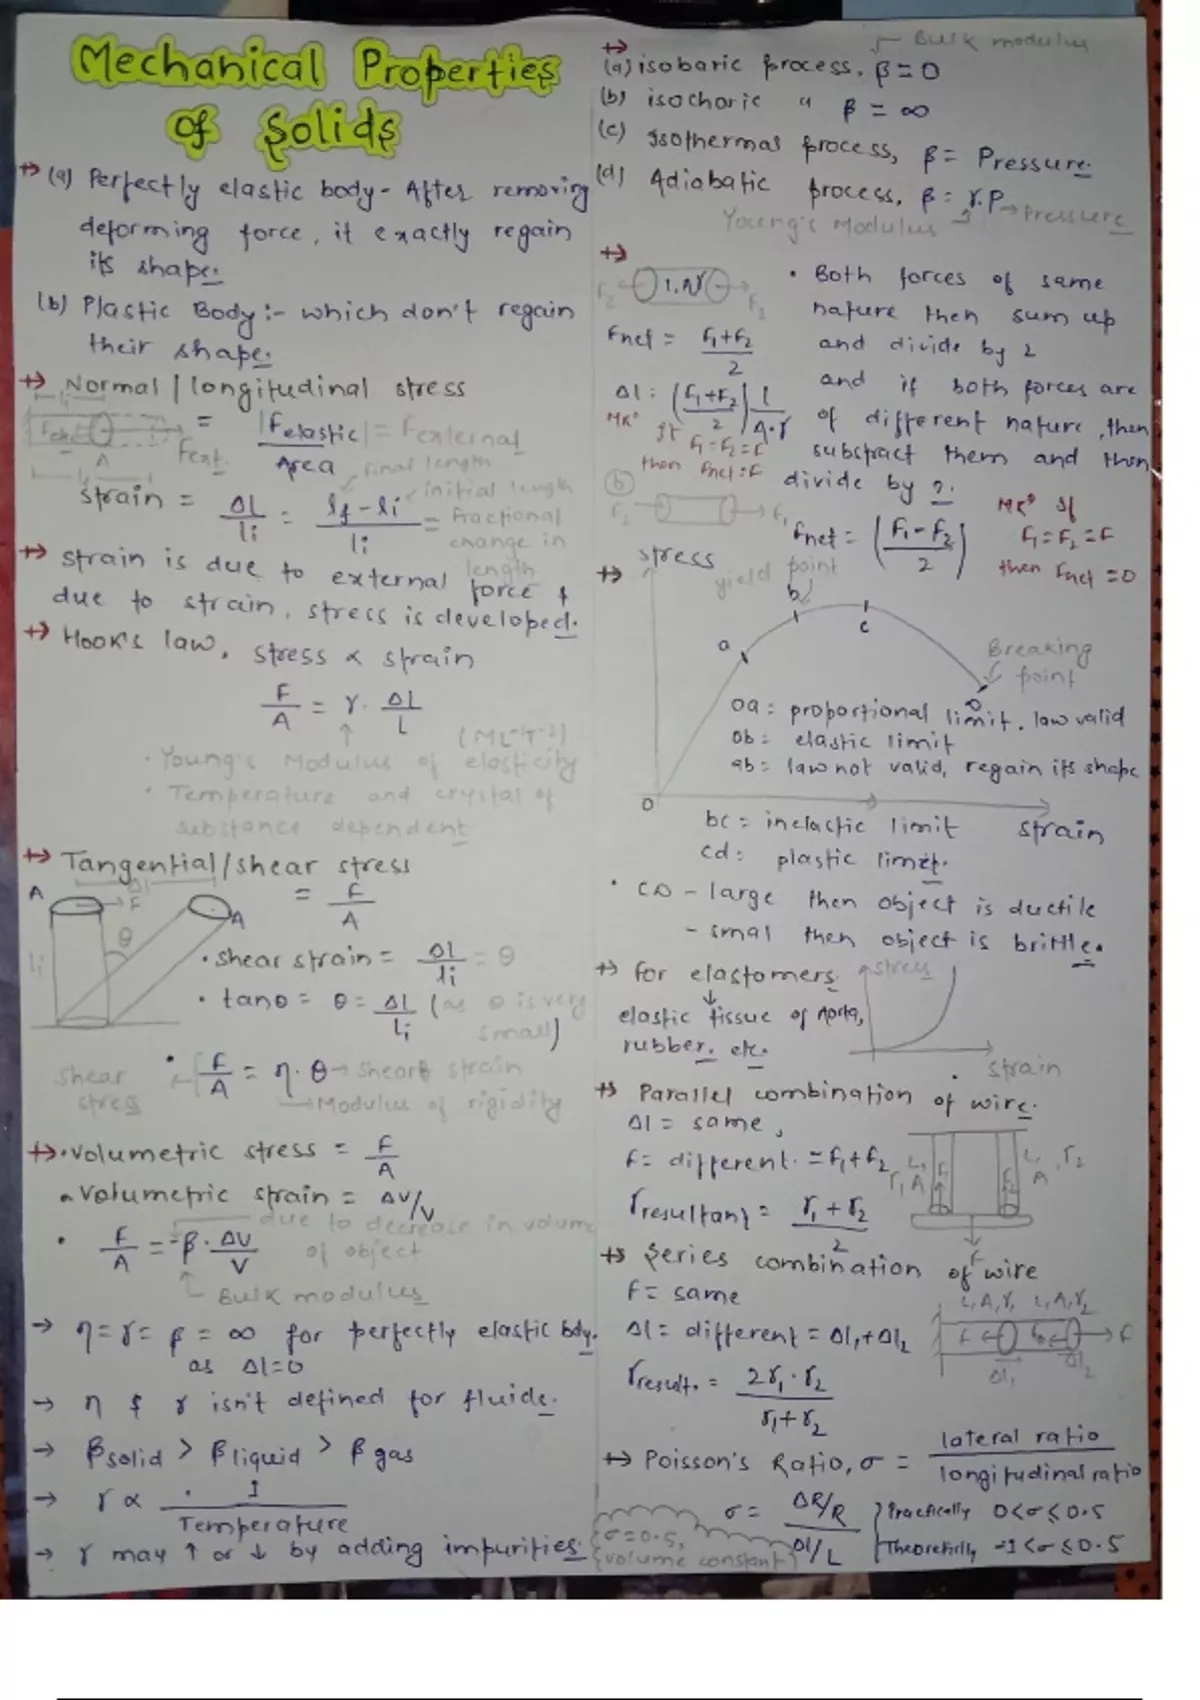 Mechanical Properties
of Solids
(a) Perfectly elastic body - After removing
deforming force, it exactly regain
its shape.
(b) Plastic Body :- which don't regain
their shape.
Normal / longitudinal stress
= |Felastic| / Area = Fexternal
Fext
Fext.
A
Strain = Δl / li = lf - li / li = Fractional change in length
final length
initial length
Strain is due to external force &
due to strain, stress is developed.
Hook's law, stress ∝ strain
F/A = Y. ΔL/L
(ML⁻¹T⁻²)
• Young's Modulus of elasticity
• Temperature and crystal of
substance dependent
Tangential/shear stress
= F/A
A
F
A
θ
li
• shear strain = Δl/li = θ
• tanθ = θ = Δl/li (as θ is very
small)
• F/A = η.θ → Shear strain
Shear
stress
→ Modulus of rigidity
• volumetric stress = F/A
• Volumetric strain = ΔV/V
due to decrease in volume
of object
• F/A = -β. ΔV/V
Bulk modulus
→ η = Y = β = ∞ for perfectly elastic bdy.
as Δl=0
→ η & Y isn't defined for fluids.
→ βsolid > βliquid > βgas
→ Y ∝ 1/Temperature
→ Y may ↑ or ↓ by adding impurities.
Bulk modulus
(a) isobaric process, β=0
(b) isochoric " β = ∞
(c) Isothermal process, β= Pressure.
(d) Adiabatic process, β= γ.P → Pressure
Young's Modulus
F2
F1
Fnet = F1+F2 / 2
Δl = (F1+F2 / 2) l / A.Y
F1=F2=F
then Fnet=F
• Both forces of same
nature then sum up
and divide by 2
and if both forces are
of different nature, then
substract them and then
divide by 2.
(b)
F2
F1
Fnet = (F1-F2 / 2)
If
F1=F2=F
then Fnet=0
stress
yield point
b
a
c
Breaking
point
D
oa = proportional limit. law valid
ob = elastic limit
ab = law not valid, regain its shape
O
strain
bc = inelastic limit
cd = plastic limit.
• CD - large then object is ductile
- smal then object is brittle.
for elastomers.
stress
elastic tissue of Aorta,
rubber. etc.
strain
Parallel combination of wire.
Δl = same,
F= different. =F1+F2
L, Y1 A
F1
F2
L, A, Y2
F
Yresultant = Y1+Y2 / 2
Series combination of wire
F= same
L,A,Y1 L,A,Y2
Δl = different = Δl1+Δl2
F
F
Δl1
Δl2
Yresult. = 2Y1.Y2 / Y1+Y2
Poisson's Ratio, σ = lateral ratio / longitudinal ratio
σ = ΔR/R / Δl/L
Practically 0<σ≤0.5
Theoretically -1<σ≤0.5
σ=0.5,
volume constant